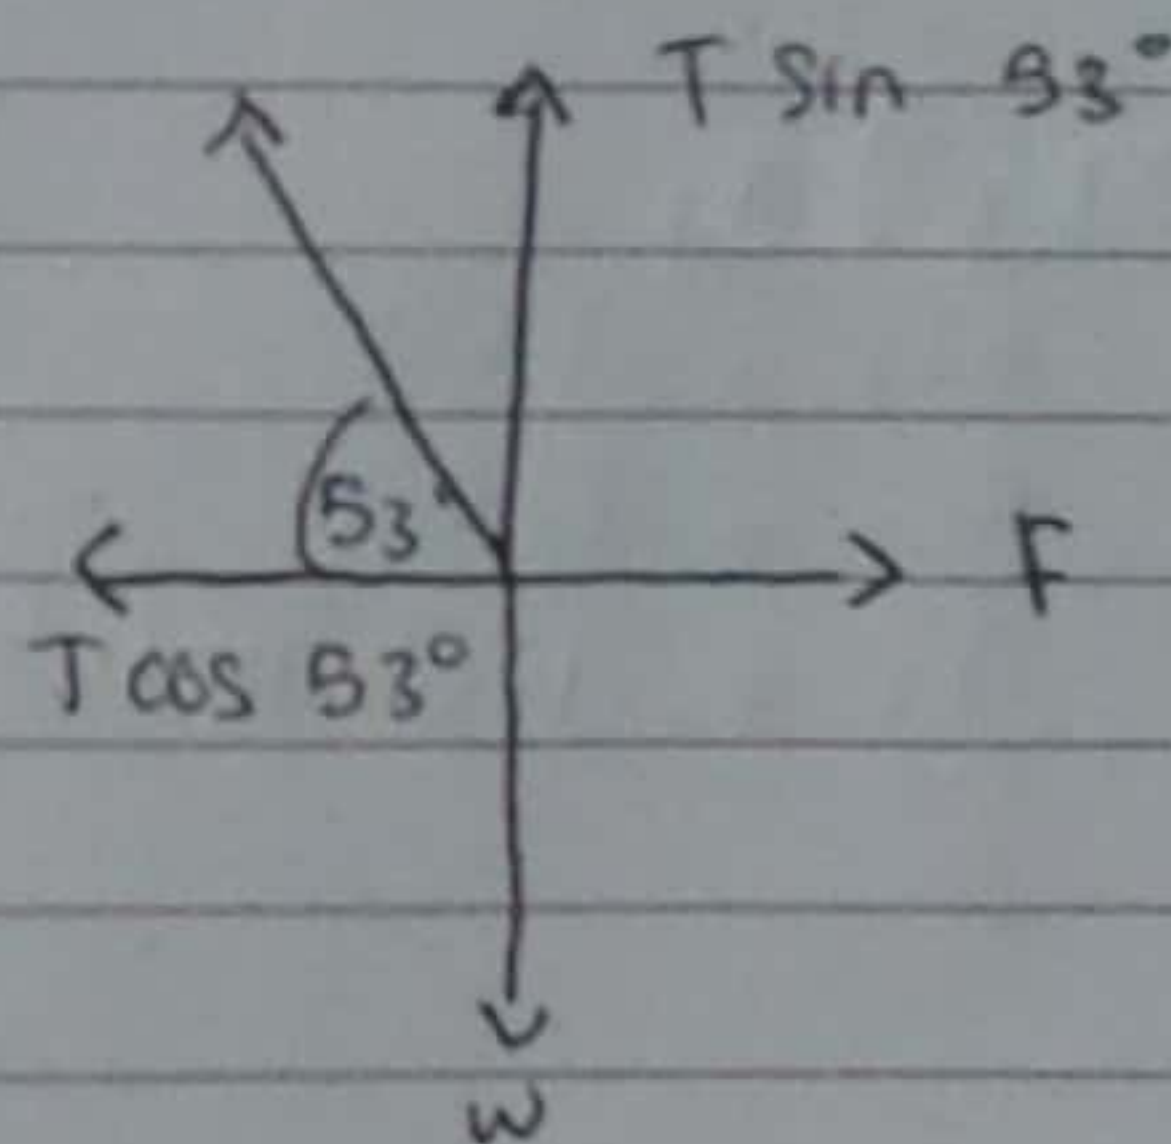 T Sin 53°
53°
F
T cos 53°
W